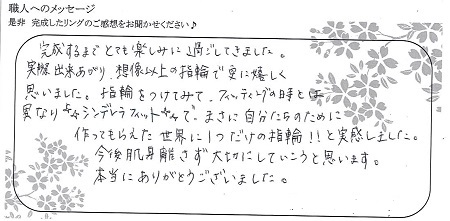 職人へのメッセージ
是非 完成したリングのご感想をお聞かせください♪
完成するまでとても楽しみに過ごしてきました。
実際出来あがり、想像以上の指輪で更に嬉しく
思いました。指輪をつけてみて、フィッティングの時とは
異なり☆☆シンデレラフィット☆☆で、まさに自分たちのために
作ってもらえた世界に1つだけの指輪!!と実感しました。
今後肌身離さず大切にしていこうと思います。
本当にありがとうございました。